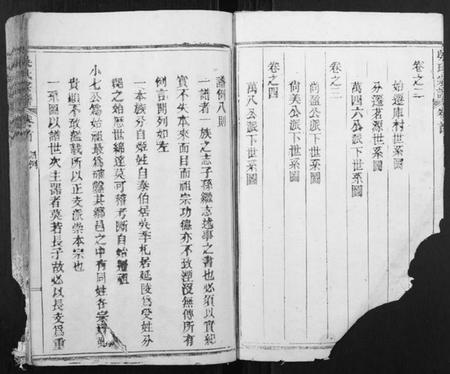 卷之三
始遷庫村世系圖
分遷茗源世系圖
萬四六公派下世系圖
尚盈公派下世系圖
尚美公派下世系圖
卷之四
萬八公派下世系圖
譜例八則
一譜者一族之志子孫繼志述事之書也必須以實紀
實不失本來面目而祖宗功德亦不致湮沒無傳所有
例言開列如左
一本族分自姬姓自泰伯居吳季札若延陵為受姓分
之始歷世綿遠莫可稽考斷自始遷祖
小七公為始祖最為確盤其鄉邑之中有同姓在宗
貴顯不敢濫載所以正支派崇本宗也
一系圖以譜世次主器者莫若長子故必以長支為重